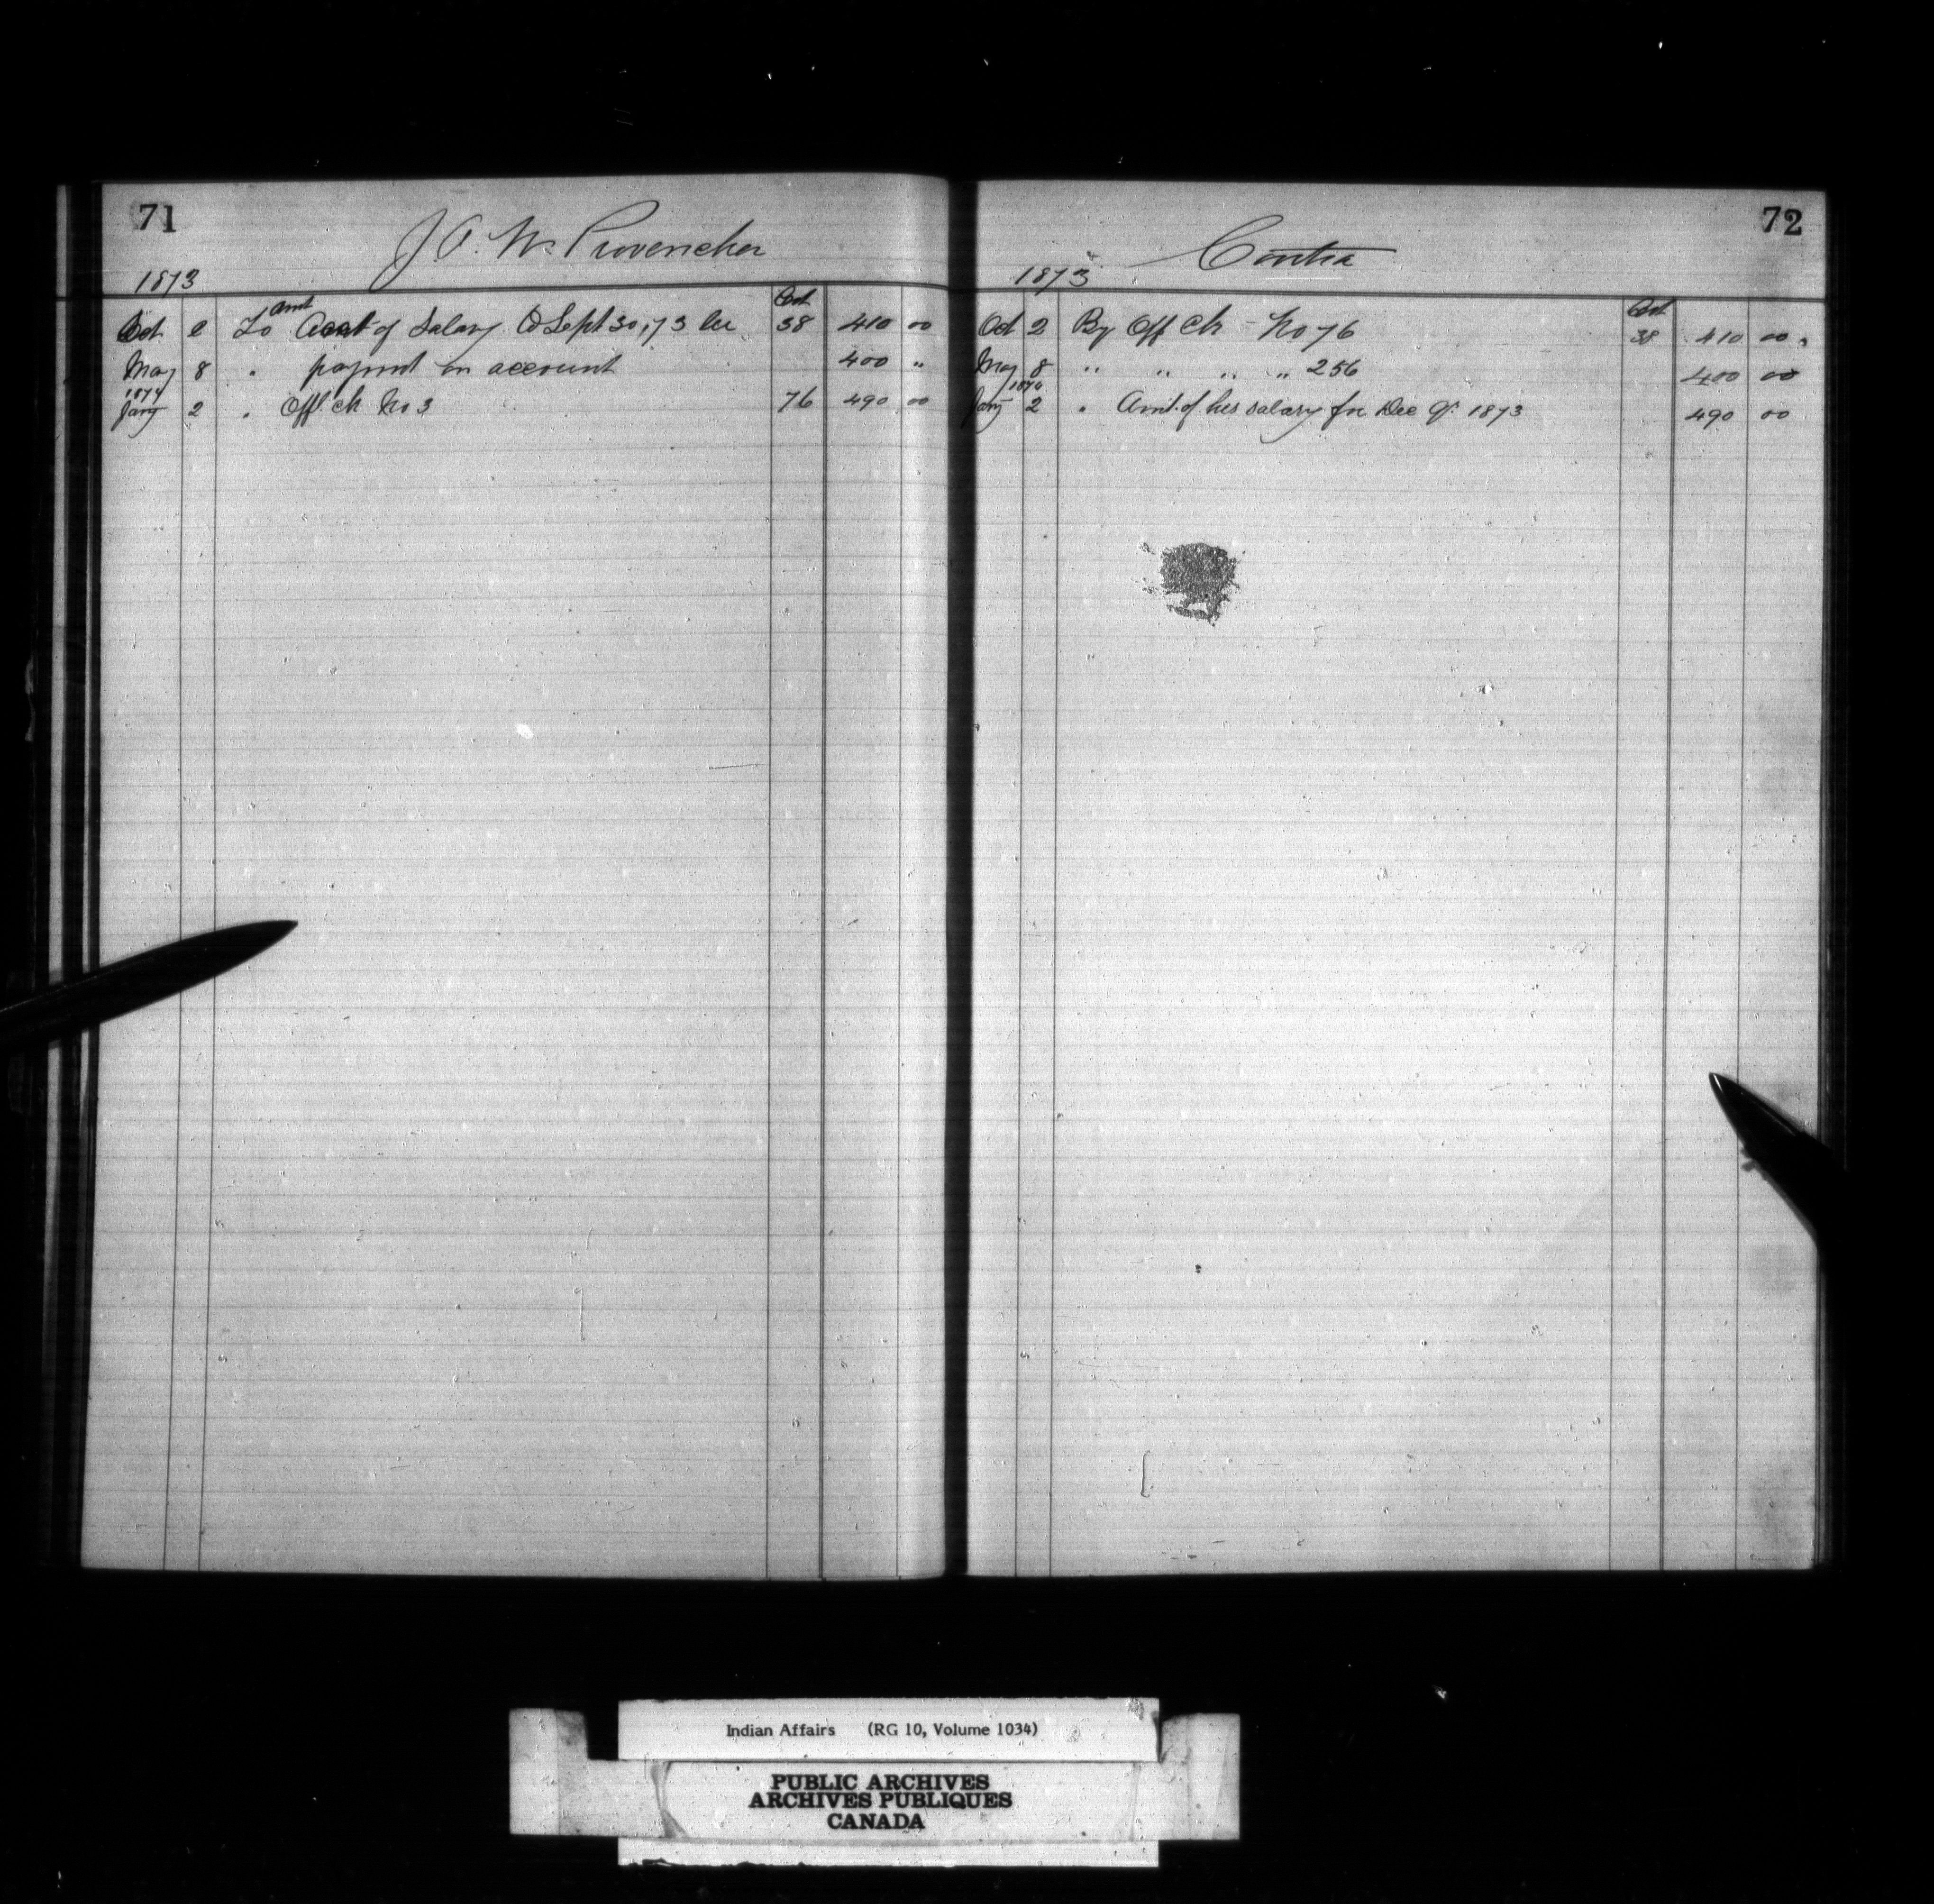 71
J. A. N. Provencher
1873
Oct
Oct 2 To Amt of Salary to Sept 30, 73 38 410 00
May 8 " paymt on account 400 "
1874
Jany 2 " Offl. ch No 3 76 490 00
72
Contra
1873
Oct 2 By Off Ch - No 76 38 410 00
May 8 " " " " 256 400 00
1874
Jany 2 " Amt. of his salary for Dec Qr. 1873 490 00
Indian Affairs (RG 10, Volume 1034)
PUBLIC ARCHIVES
ARCHIVES PUBLIQUES
CANADA